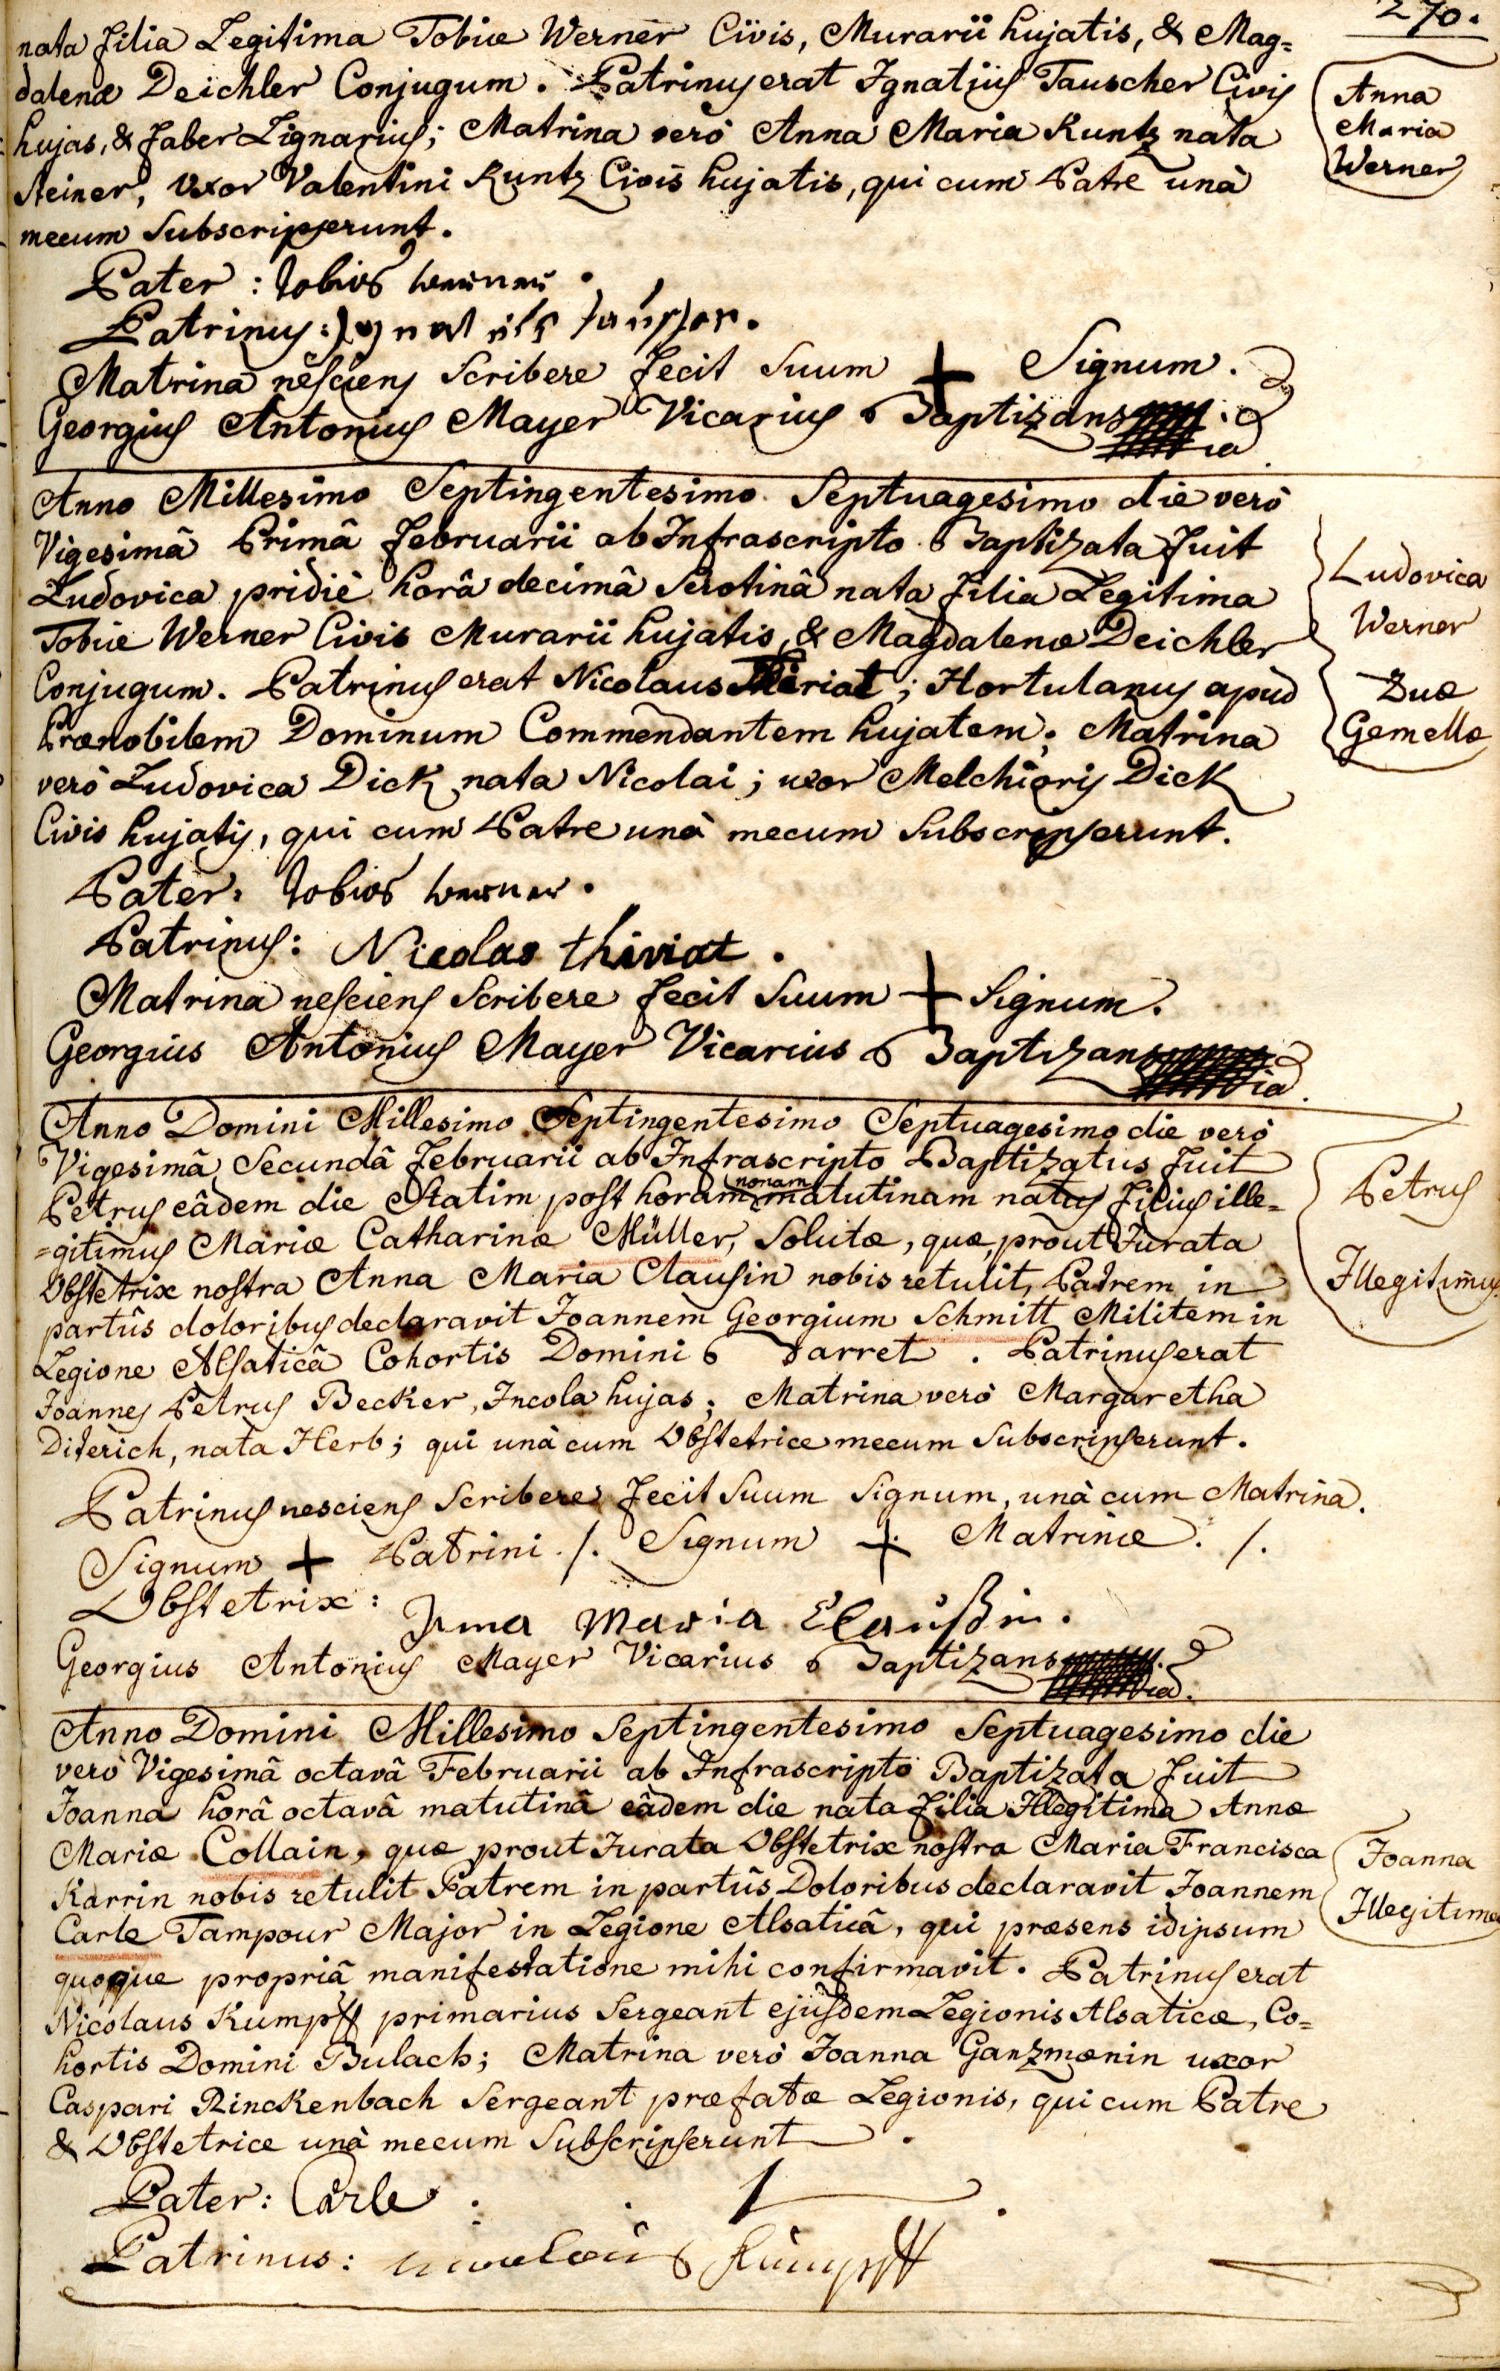 270.
nata filia Legitima Tobiæ Werner Civis, Murarii hujatis, & Mag=
dalenæ Deichler Conjugum. Patrinus erat Ignatius Tauscher Civis
hujas, & faber Lignarius; Matrina verò Anna Maria Kuntz nata
Steiner, Uxor Valentini Kuntz Civis hujatis, qui cum Patre unà
mecum Subscripserunt.
Anna
Maria
Werner
Pater: Tobias Werner.
Patrinus: Ignatius Tauscher.
Matrina nesciens Scribere fecit Suum + Signum.
Georgius Antonius Mayer Vicarius Baptizans
Anno Millesimo Septingentesimo Septuagesimo die verò
Vigesimâ Primâ Februarii ab Infrascripto Baptizata fuit
Ludovica pridiè horâ decimâ Serotinâ nata filia Legitima
Tobiæ Werner Civis Murarii hujatis, & Magdalenæ Deichler
Conjugum. Patrinus erat Nicolaus Theriat; Hortulanus apud
Prænobilem Dominum Commendantem hujatem; Matrina
verò Ludovica Dick nata Nicolai; uxor Melchioris Dick
Civis hujatis, qui cum Patre unà mecum Subscripserunt.
Ludovica
Werner
Duæ
Gemellæ
Pater: Tobias Werner.
Patrinus: Nicolas thiriat.
Matrina nesciens Scribere fecit Suum + Signum.
Georgius Antonius Mayer Vicarius Baptizans
Anno Domini Millesimo Septingentesimo Septuagesimo die verò
Vigesimâ Secundâ Februarii ab Infrascripto Baptizatus fuit
Petrus eâdem die Statim post horam nonam matutinam natus filius ille=
=gitimus Mariæ Catharinæ Müller, Solutæ, quæ, prout Jurata
Obstetrix nostra Anna Maria Clausin nobis retulit, Patrem in
partûs doloribus declaravit Joannem Georgium Schmitt Militem in
Legione Alsaticâ Cohortis Domini Darret. Patrinus erat
Joannes Petrus Becker, Incola hujas; Matrina verò Margaretha
Diterich, nata Herb; qui unà cum Obstetrice mecum Subscripserunt.
Petrus
Illegitimus
Patrinus nesciens Scribere fecit Suum Signum, unà cum Matrina.
Signum + Patrini ./. Signum + Matrinæ. ./.
Obstetrix: Anna Maria Claußin.
Georgius Antonius Mayer Vicarius Baptizans
Anno Domini Millesimo Septingentesimo Septuagesimo die
verò Vigesimâ octavâ Februarii ab Infrascripto Baptizata fuit
Joanna horâ octavâ matutinâ eâdem die nata filia Illegitima Annæ
Mariæ Collain, quæ prout Jurata Obstetrix nostra Maria Francisca
Karrin nobis retulit Patrem in partûs Doloribus declaravit Joannem
Carle Tampour Major in Legione Alsaticâ, qui præsens idipsum
quoque propriâ manifestatione mihi confirmavit. Patrinus erat
Nicolaus Kumpff primarius Sergeant ejusdem Legionis Alsaticæ, Co=
hortis Domini Bulach; Matrina verò Joanna Ganzmænin uxor
Caspari Rinckenbach Sergeant præfatæ Legionis, qui cum Patre
& Obstetrice unà mecum Subscripserunt.
Joanna
Illegitima
Pater: Carle
Patrinus: Nicolaus Kumpff